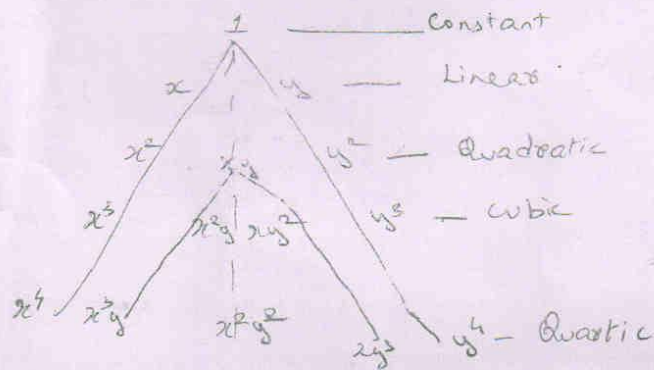 1 — Constant
x y — Linear
x² xy y² — Quadratic
x³ x²y xy² y³ — Cubic
x⁴ x³y x²y² xy³ y⁴ — Quartic